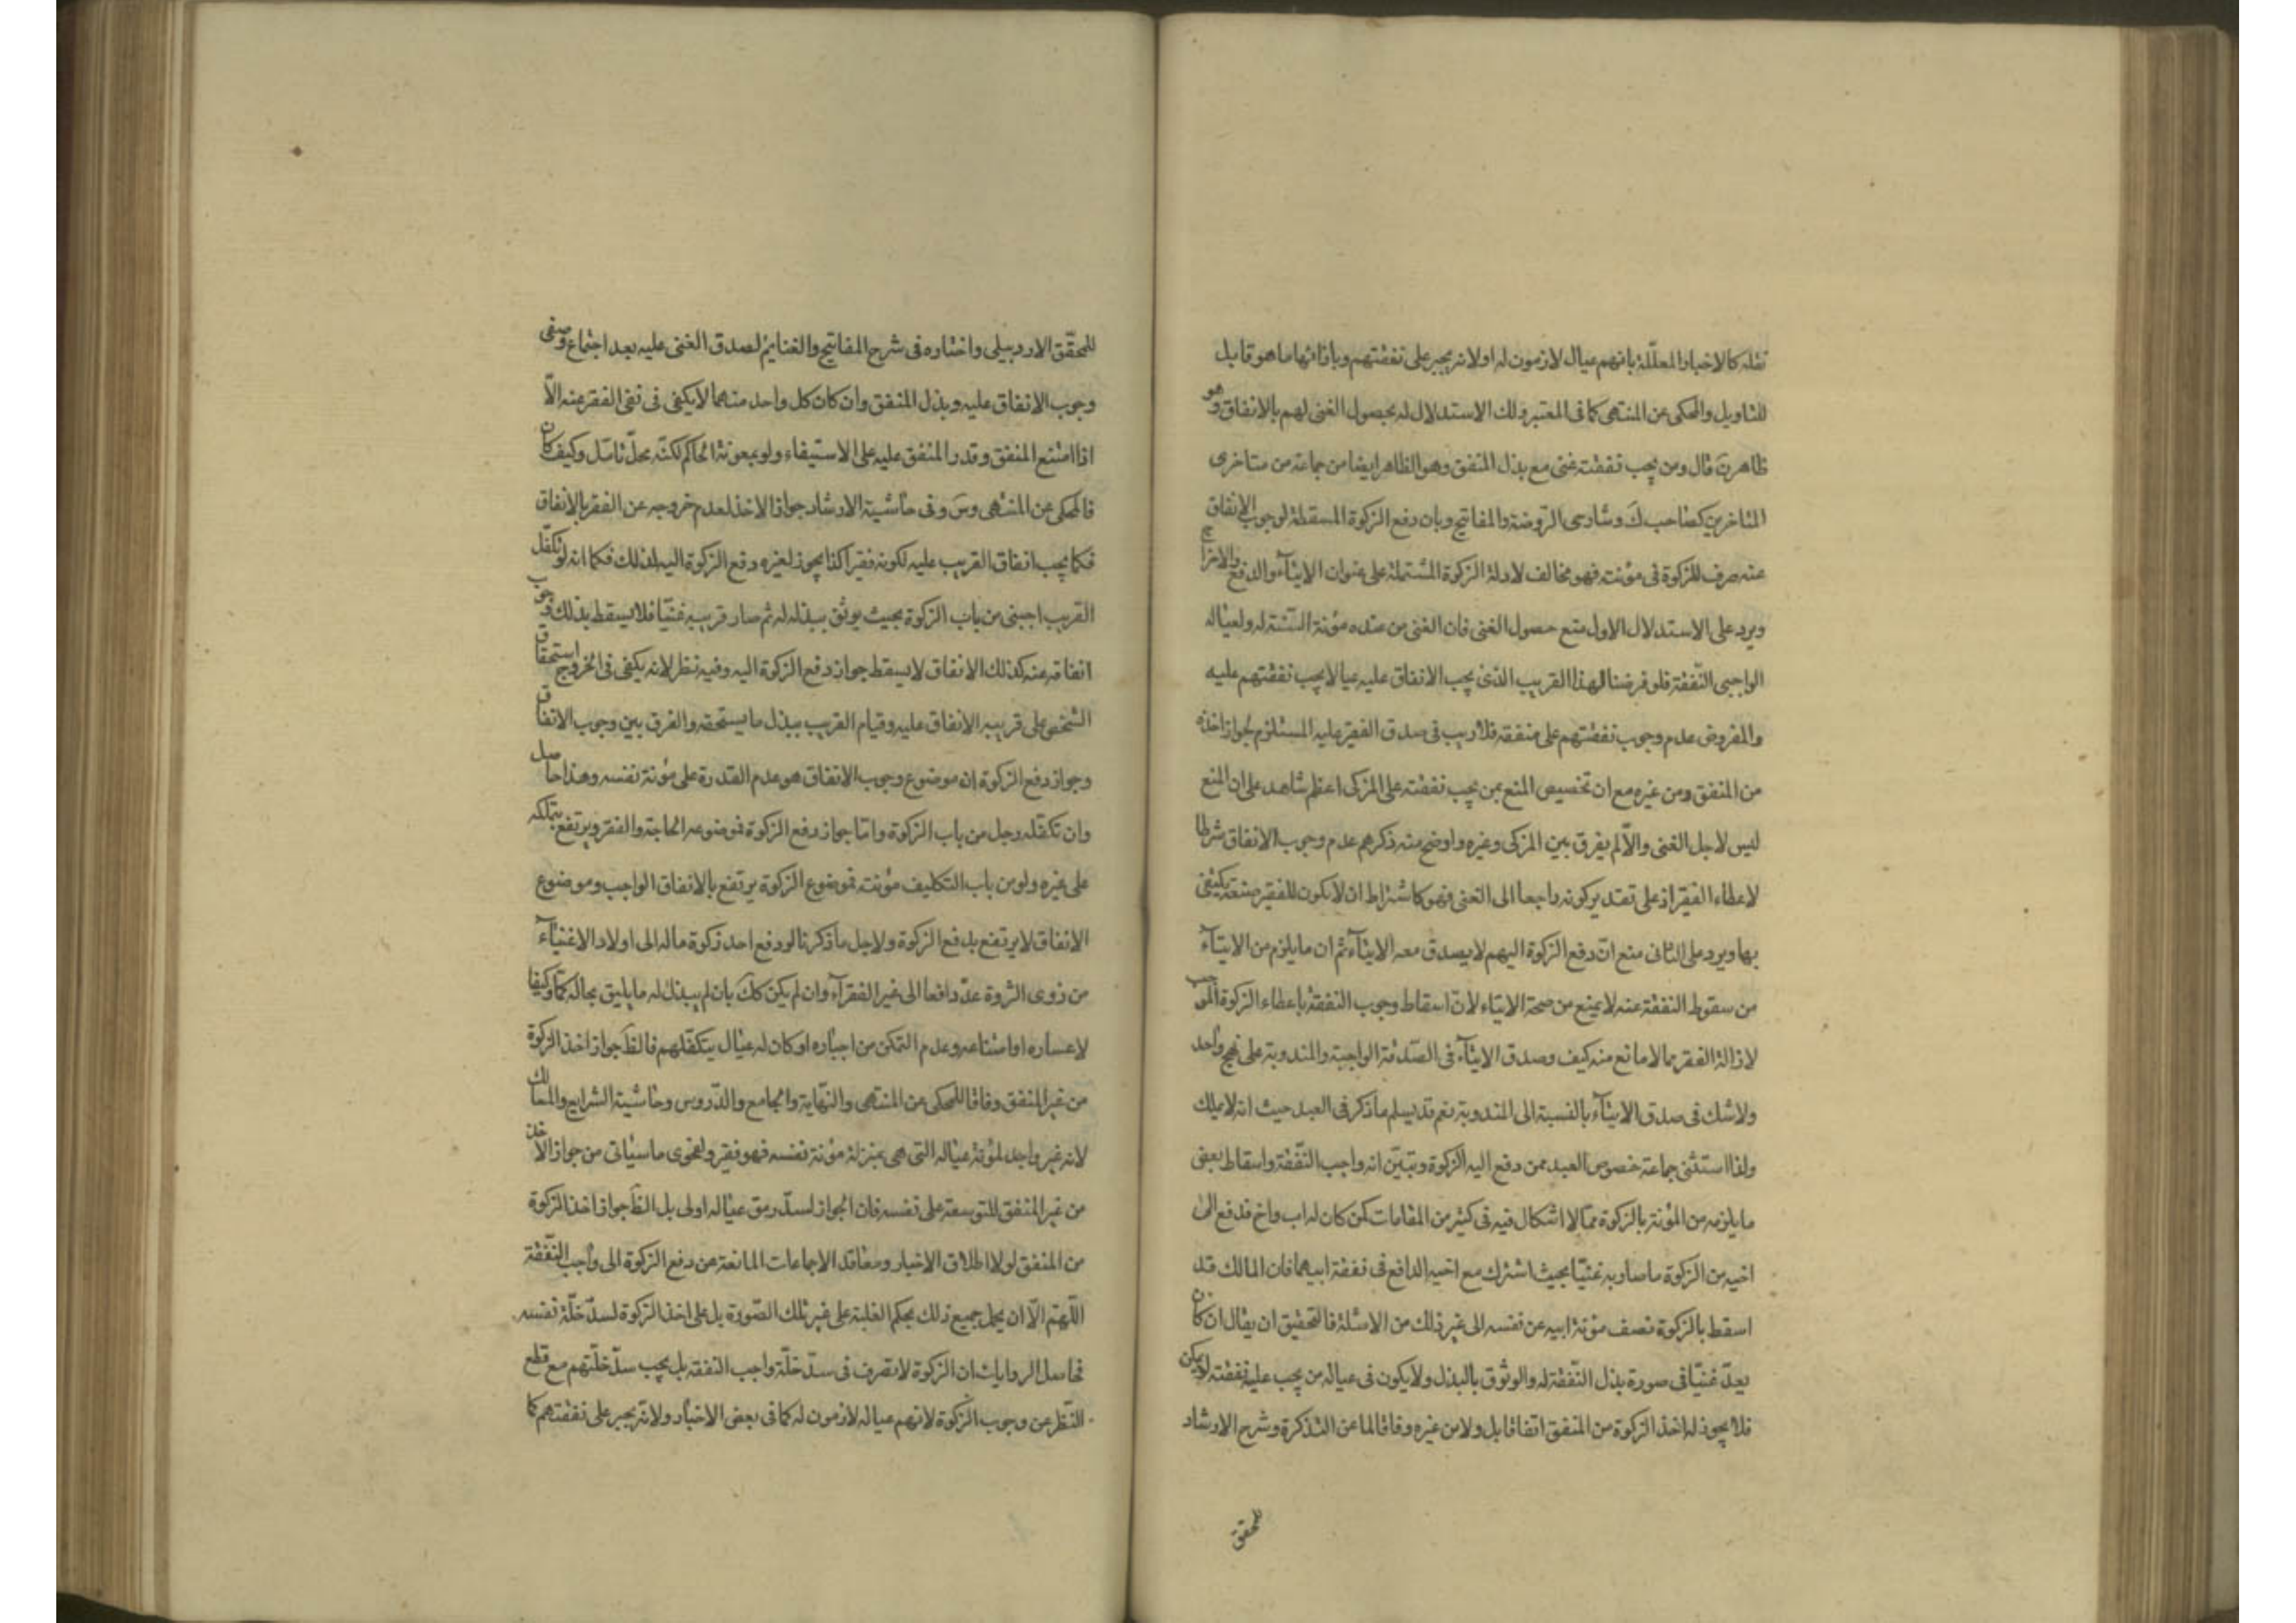 نقله كالاخبار المعلّلة بانهم عيال لازمون له او لانه يجبر على نفقتهم وبازائها ما هو قابل
للتاويل والمحكى عن المنتهى كما فى المعتبر ذلك الاستدلال له بحصول الغنى لهم بالانفاق وهو
ظاهر قال ومن يجب نفقته غنى مع بذل المنفق وهو الظاهر ايضا من جماعة من متاخرى
المتاخرين كصاحب ك وشارحى الروضة والمفاتيح وبان دفع الزكوة المسقطة لوجوب الانفاق
عنه صرف للزكوة فى مؤنته فهو مخالف لادلة الزكوة المشتملة على عنوان الايتاء والدفع والاخراج
ويرد على الاستدلال الاول منع حصول الغنى فان الغنى من عنده مؤنة السنة له ولعياله
الواجبى النّفقة فلو فرضنا لهذا القريب الذى يجب الانفاق عليه عيالا يجب نفقتهم عليه
والمفروض عدم وجوب نفقتهم على منفقه فلا ريب فى صدق الفقير عليه المستلزم لجواز اخذه
من المنفق ومن غيره مع ان تخصيص المنع بمن يجب نفقته على المزكى اعظم شاهد على ان المنع
ليس لاجل الغنى والّا لم يفرق بين المزكى وغيره واوضح منه ذكرهم عدم وجوب الانفاق شرطا
لاعطاء الفقير اذ على تقدير كونه راجعا الى الغنى فهو كاشتراط ان لا يكون للفقير صنعة يكتفى
بها ويرد على الثانى منع انّ دفع الزكوة اليهم لا يصدق معه الايتآء ثم ان ما يلزم من الايتآء
من سقوط النفقة عنه لا يمنع من صحة الايتاء لانّ اسقاط وجوب النفقة باعطاء الزكوة الموجب
لازالة الفقر مما لا مانع منه كيف وصدق الايتآء فى الصّدقة الواجبة والمندوبة على نهج واحد
ولا شك فى صدق الايتآء بالنسبة الى المندوبة نعم قد يسلم ما ذكر فى العبد حيث انه لا يملك
ولذا استثنى جماعة خصوص العبد ممن دفع اليه الزكوة وتبيّن انه واجب النّفقة واسقاط بعض
ما يلزمه من المؤنة بالزكوة ممّا لا اشكال فيه فى كثير من المقامات كمن كان له اب واخ فدفع الى
اخيه من الزكوة ما صار به غنيّا بحيث اشترك مع اخيه الدافع فى نفقة ابيهما فان المالك قد
اسقط بالزكوة نصف مؤنة ابيه عن نفسه الى غير ذلك من الامثلة فالتحقيق ان يقال ان كان
يعدّ غنيّا فى صورة بذل النّفقة له والوثوق بالبذل ولا يكون فى عياله من يجب عليه نفقته
فلا يجوز له اخذ الزكوة من المنفق اتفاقا بل ولا من غيره وفاقا لما عن التذكرة وشرح الارشاد
للمحقق
للمحقّق الاردبيلى واختاره فى شرح المفاتيح والغنايم لصدق الغنى عليه بعد اجتماع وصفى
وجوب الانفاق عليه وبذل المنفق وان كان كل واحد منهما لا يكفى فى نفى الفقر عنه الّا
اذا امتنع المنفق وقدر المنفق عليه على الاستيفاء ولو بمعونة الحاكم لكنّه محلّ تامّل وكيف كان
فالمحكى عن المنتهى وس وفى حاشية الارشاد جواز الاخذ لعدم خروجه عن الفقر بالانفاق
فكما يجب انفاق القريب عليه لكونه فقيرا كذا يجوز لغيره دفع الزكوة اليه لذلك فكما انه لو تكفّل
القريب اجنبى من باب الزكوة بحيث يوثق ببذله له ثم صار قريبه غنيّا فلا يسقط بذلك وجوب
انفاقه عنه كذلك الانفاق لا يسقط جواز دفع الزكوة اليه وفيه نظر لانه يكفى فى الخروج استحقاق
الشخص على قريبه الانفاق عليه وقيام القريب ببذل ما يستحقه والفرق بين وجوب الانفاق
وجواز دفع الزكوة ان موضوع وجوب الانفاق هو عدم القدرة على مؤنة نفسه وهذا حاصل
وان تكفّله رجل من باب الزكوة وامّا جواز دفع الزكوة فموضوعه الحاجة والفقر ويرتفع بتملكه
على غيره ولو من باب التكليف مؤنته فموضوع الزكوة يرتفع بالانفاق الواجب وموضوع
الانفاق لا يرتفع بدفع الزكوة ولاجل ما ذكرنا لو دفع احد زكوة ماله الى اولاد الاغنيآء
من ذوى الثروة عدّ دافعا الى غير الفقرآء وان لم يكن كك بان لم يبذل له ما يليق بحاله كمّا وكيفا
لاعساره او امتناعه وعدم التمكن من اجباره او كان له عيال يتكفّلهم فالظ جواز اخذ الزكوة
من غير المنفق وفاقا للمحكى عن المنتهى والنّهاية والجامع والدّروس وحاشية الشرايع والمسالك
لانه غير واجد لمؤنة عياله التى هى بمنزلة مؤنة نفسه فهو فقير ولفحوى ما سياتى من جواز الاخذ
من غير المنفق للتوسعة على نفسه فان الجواز لسدّ رمق عياله اولى بل الظ جواز اخذ الزكوة
من المنفق لولا اطلاق الاخبار ومعاقد الاجماعات المانعة عن دفع الزكوة الى واجب النّفقة
اللّهمّ الّا ان يحمل جميع ذلك بحكم الغلبة على غير تلك الصّورة بل على اخذ الزكوة لسدّ خلّة نفسه
فحاصل الروايات ان الزكوة لا تصرف فى سدّ خلّة واجب النفقة بل يجب سدّ خلّتهم مع قطع
النّظر عن وجوب الزكوة لانهم عياله لازمون له كما فى بعض الاخبار ولانّه يجبر على نفقتهم كما